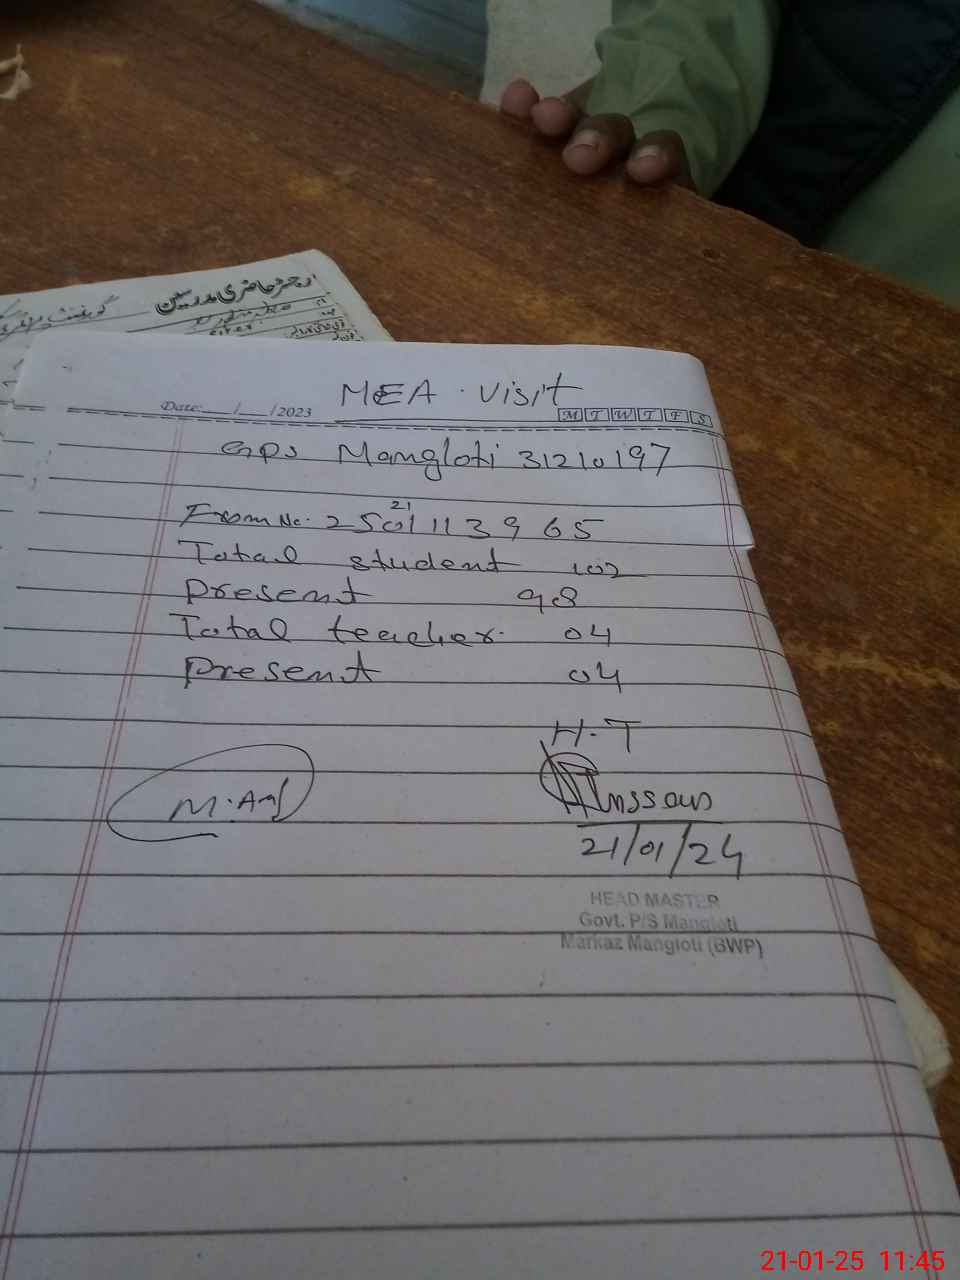 رجسٹر حاضری مدرسین
MEA . Visit
Date: __/__/2023 M T W T F S
GPS Mangloti 31210197
From No. 2501113965
21
Total student 102
Present 98
Total teacher. 04
Present 04
H.T
21/01/24
HEAD MASTER
Govt. P/S Mangloti
Markaz Mangloti (BWP)
21-01-25 11:45